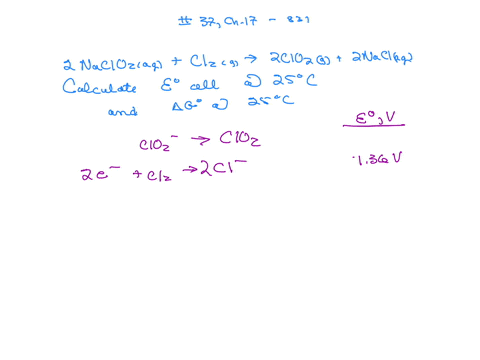 # 37, Ch-17 - 821
2 NaClO2(aq) + Cl2(g) → 2ClO2(g) + 2NaCl(aq)
Calculate E° cell @ 25°C
and ΔG° @ 25°C
E°, V
ClO2⁻ → ClO2
2e⁻ + Cl2 → 2Cl⁻ 1.36 V